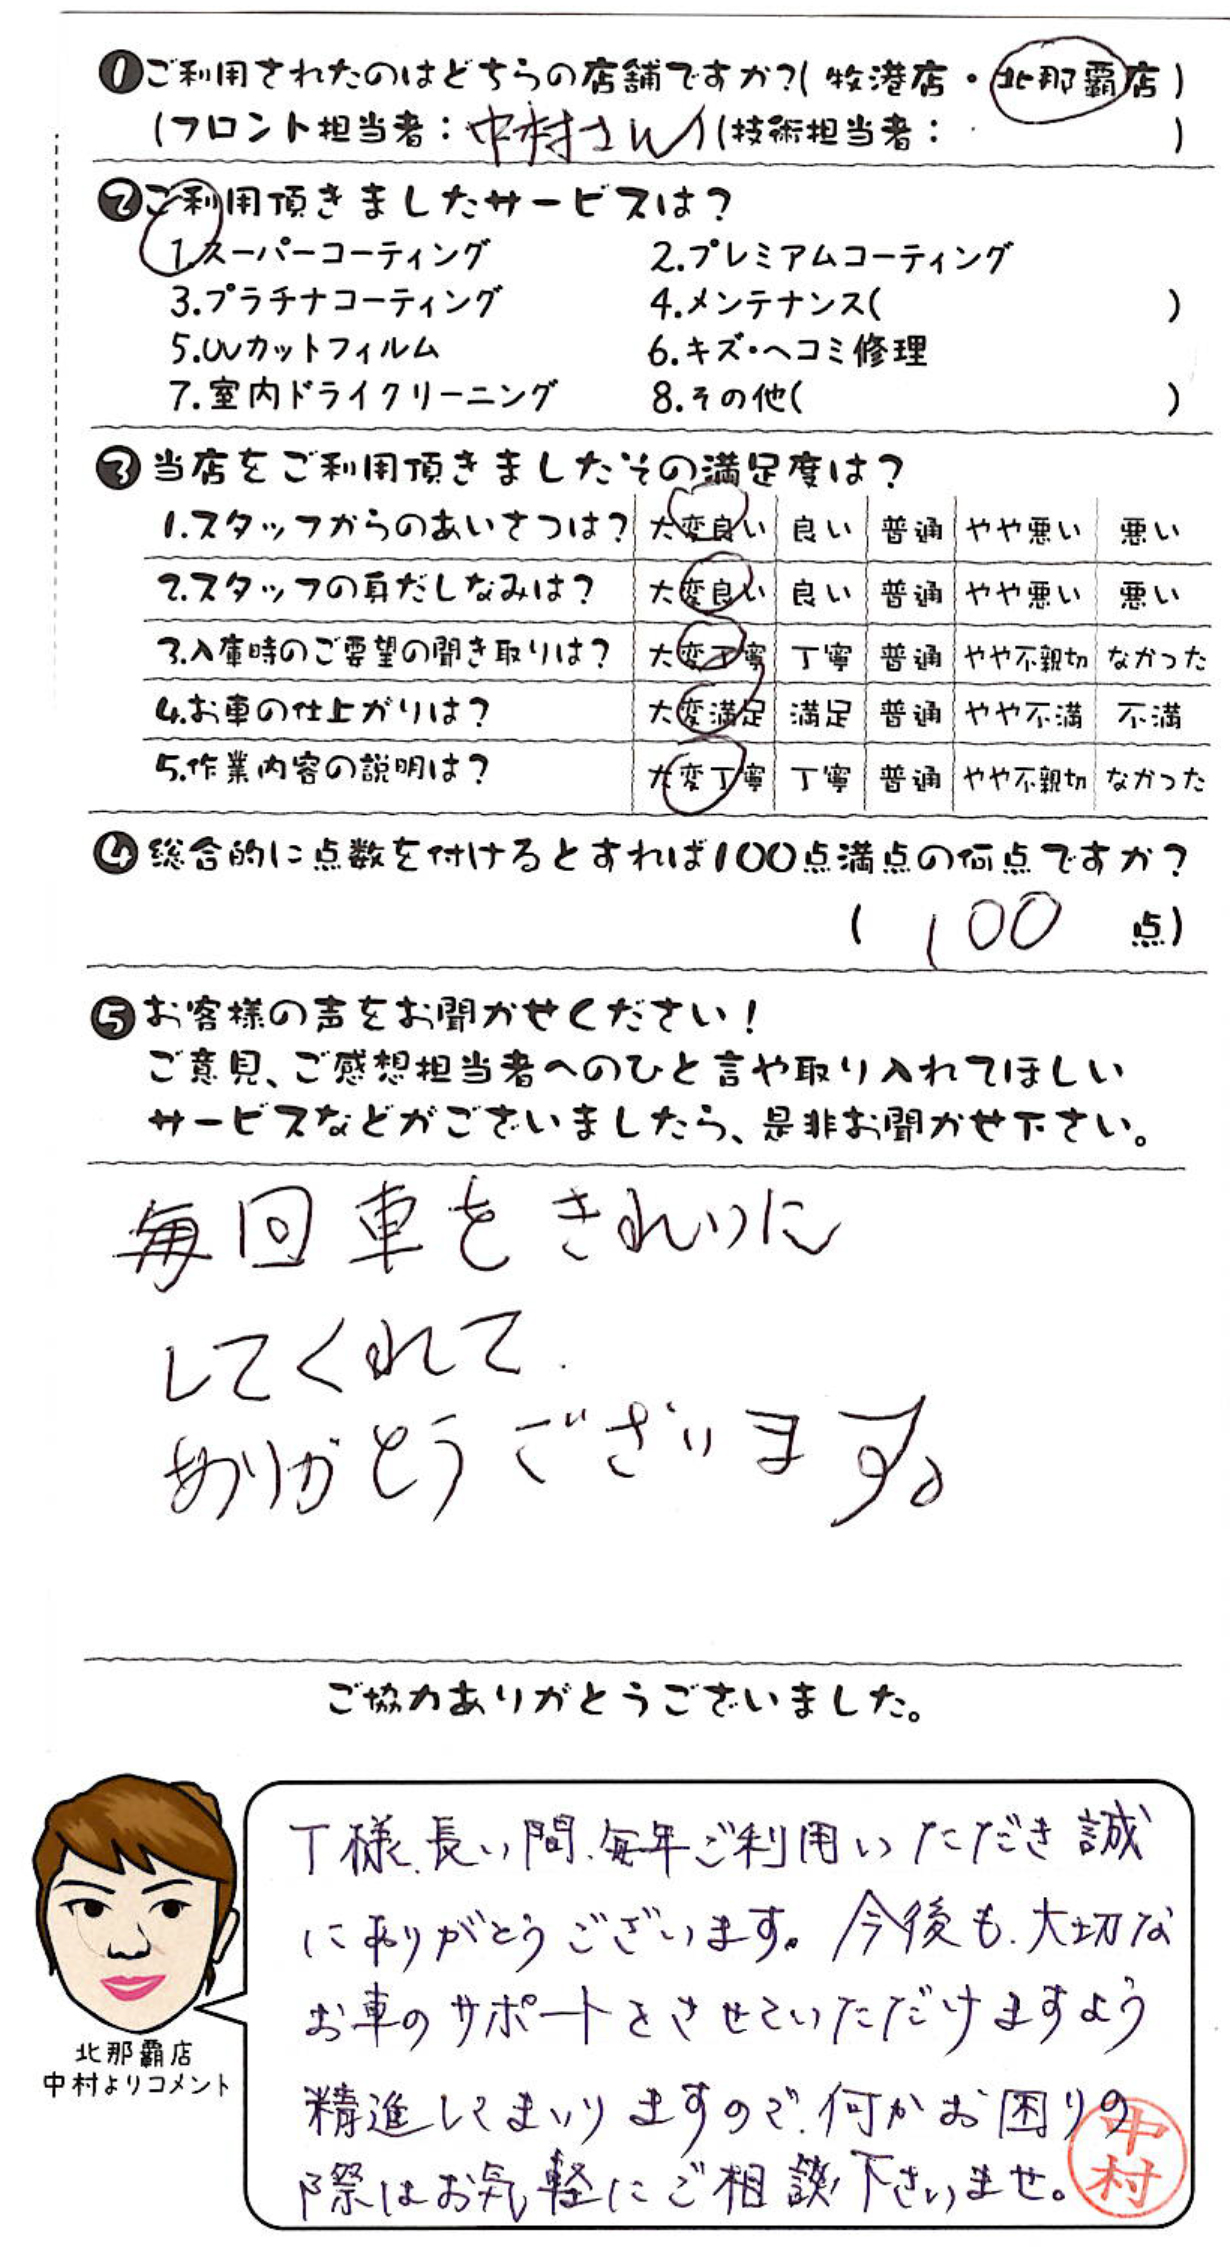 ❶ご利用されたのはどちらの店舗ですか?(牧港店・北那覇店)
(フロント担当者:中村さん)(技術担当者: )
❷ご利用頂きましたサービスは?
1.スーパーコーティング 2.プレミアムコーティング
3.プラチナコーティング 4.メンテナンス( )
5.UVカットフィルム 6.キズ・ヘコミ修理
7.室内ドライクリーニング 8.その他( )
❸当店をご利用頂きましたその満足度は?
1.スタッフからのあいさつは? 大変良い 良い 普通 やや悪い 悪い
2.スタッフの身だしなみは? 大変良い 良い 普通 やや悪い 悪い
3.入庫時のご要望の聞き取りは? 大変丁寧 丁寧 普通 やや不親切 なかった
4.お車の仕上がりは? 大変満足 満足 普通 やや不満 不満
5.作業内容の説明は? 大変丁寧 丁寧 普通 やや不親切 なかった
❹総合的に点数を付けるとすれば100点満点の何点ですか?
( 100 点)
❺お客様の声をお聞かせください!
ご意見、ご感想担当者へのひと言や取り入れてほしい
サービスなどがございましたら、是非お聞かせ下さい。
毎回車をきれいに
してくれて
ありがとうございます。
ご協力ありがとうございました。
T様、長い間、毎年ご利用いただき誠
にありがとうございます。今後も、大切な
お車のサポートをさせていただけますよう
精進してまいりますので、何かお困りの
際はお気軽にご相談下さいませ。
中村
北那覇店
中村よりコメント